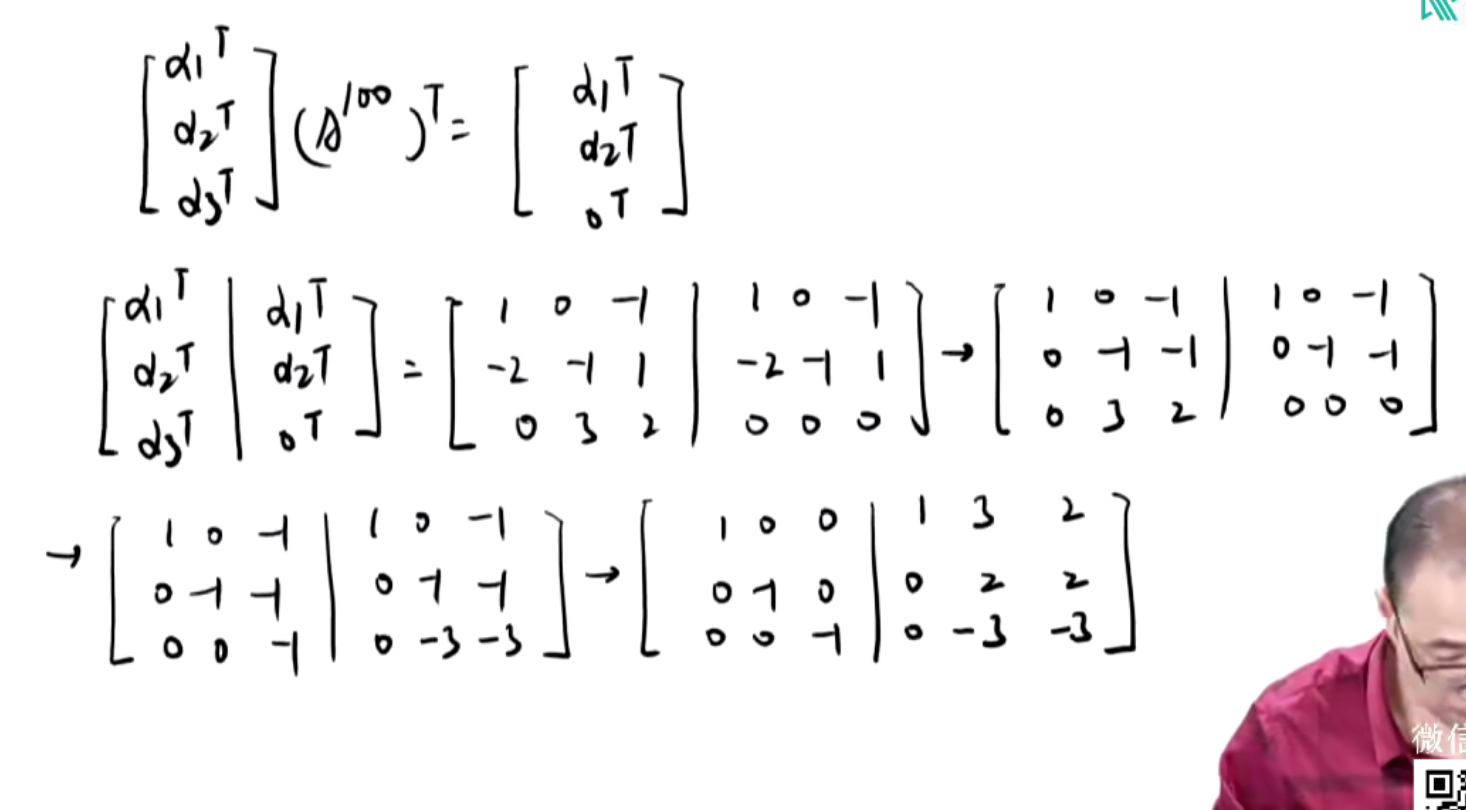 [α₁ᵀ; α₂ᵀ; α₃ᵀ] (A¹⁰⁰)ᵀ = [α₁ᵀ; α₂ᵀ; 0ᵀ]
[α₁ᵀ | α₁ᵀ; α₂ᵀ | α₂ᵀ; α₃ᵀ | 0ᵀ] = [1 0 -1 | 1 0 -1; -2 -1 1 | -2 -1 1; 0 3 2 | 0 0 0] → [1 0 -1 | 1 0 -1; 0 -1 -1 | 0 -1 -1; 0 3 2 | 0 0 0]
→ [1 0 -1 | 1 0 -1; 0 -1 -1 | 0 -1 -1; 0 0 -1 | 0 -3 -3] → [1 0 0 | 1 3 2; 0 -1 0 | 0 2 2; 0 0 -1 | 0 -3 -3]
微信